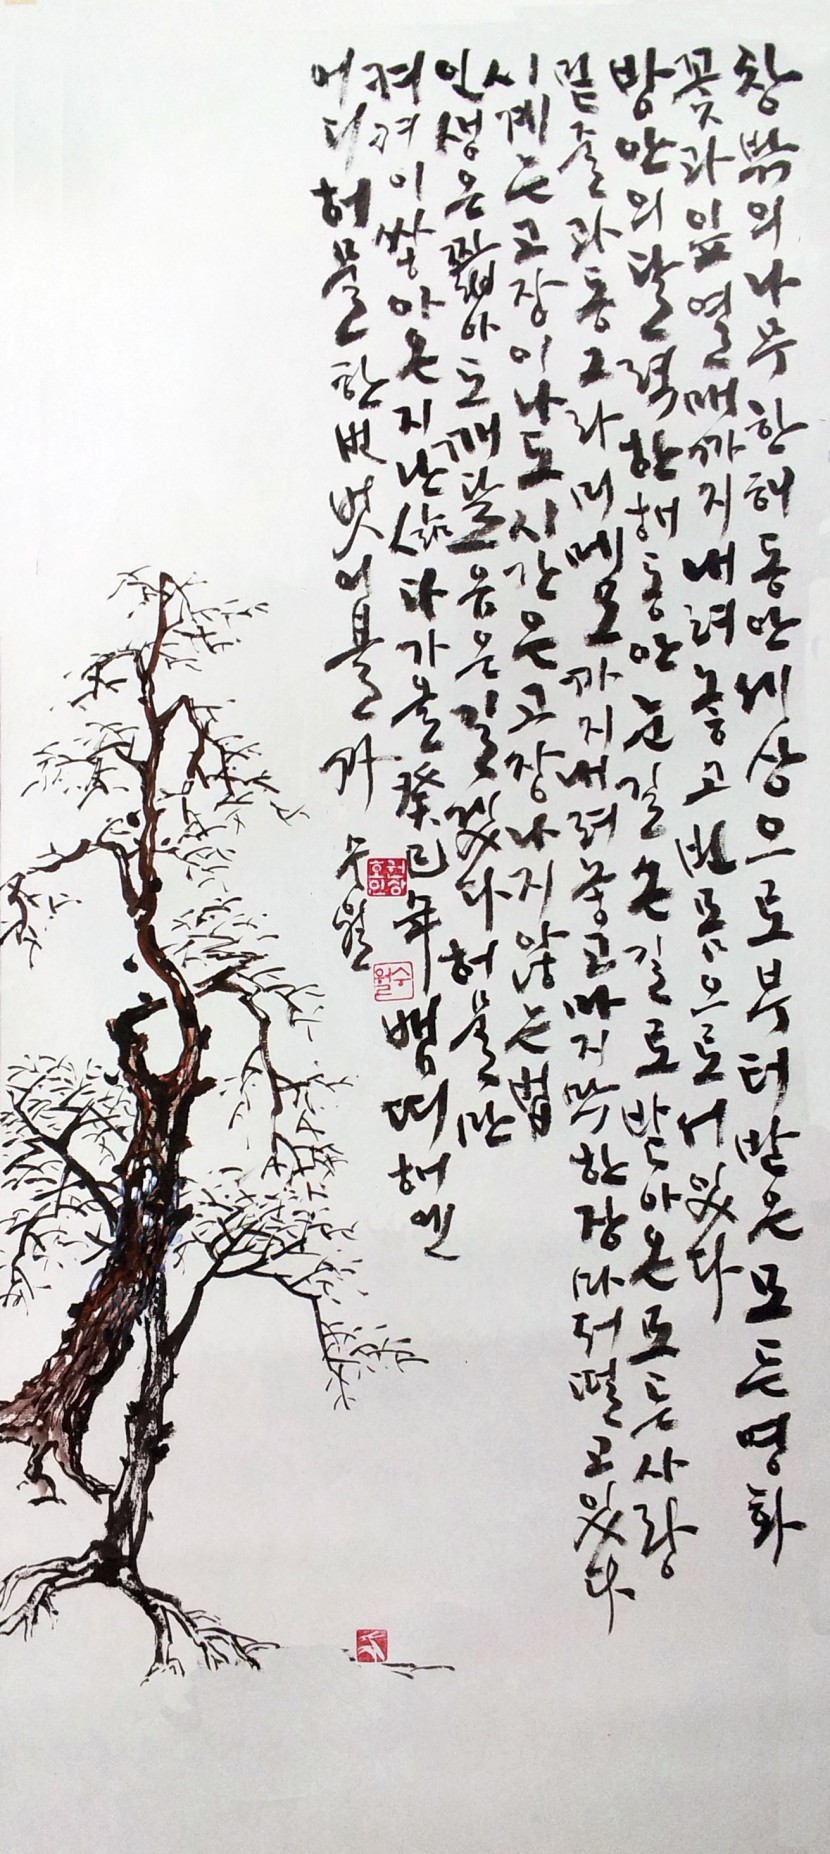 창밖의나무한해동안세상으로부터받은모든영화
꽃과잎열매까지내려놓고빈몸으로서있다
방안의달력한해동안눈길손길로받아온모든사랑
밑줄과동그라미메모까지내려놓고마지막한장마저떨고있다
시계는고장이나도시간은고장나지않는법
인생은짧아도깨달음은길겠다허물만
켜켜이쌓아온지난삶다가올癸巳年뱀띠해엔
어디허물한번벗어볼까
수월
권상호인
수월